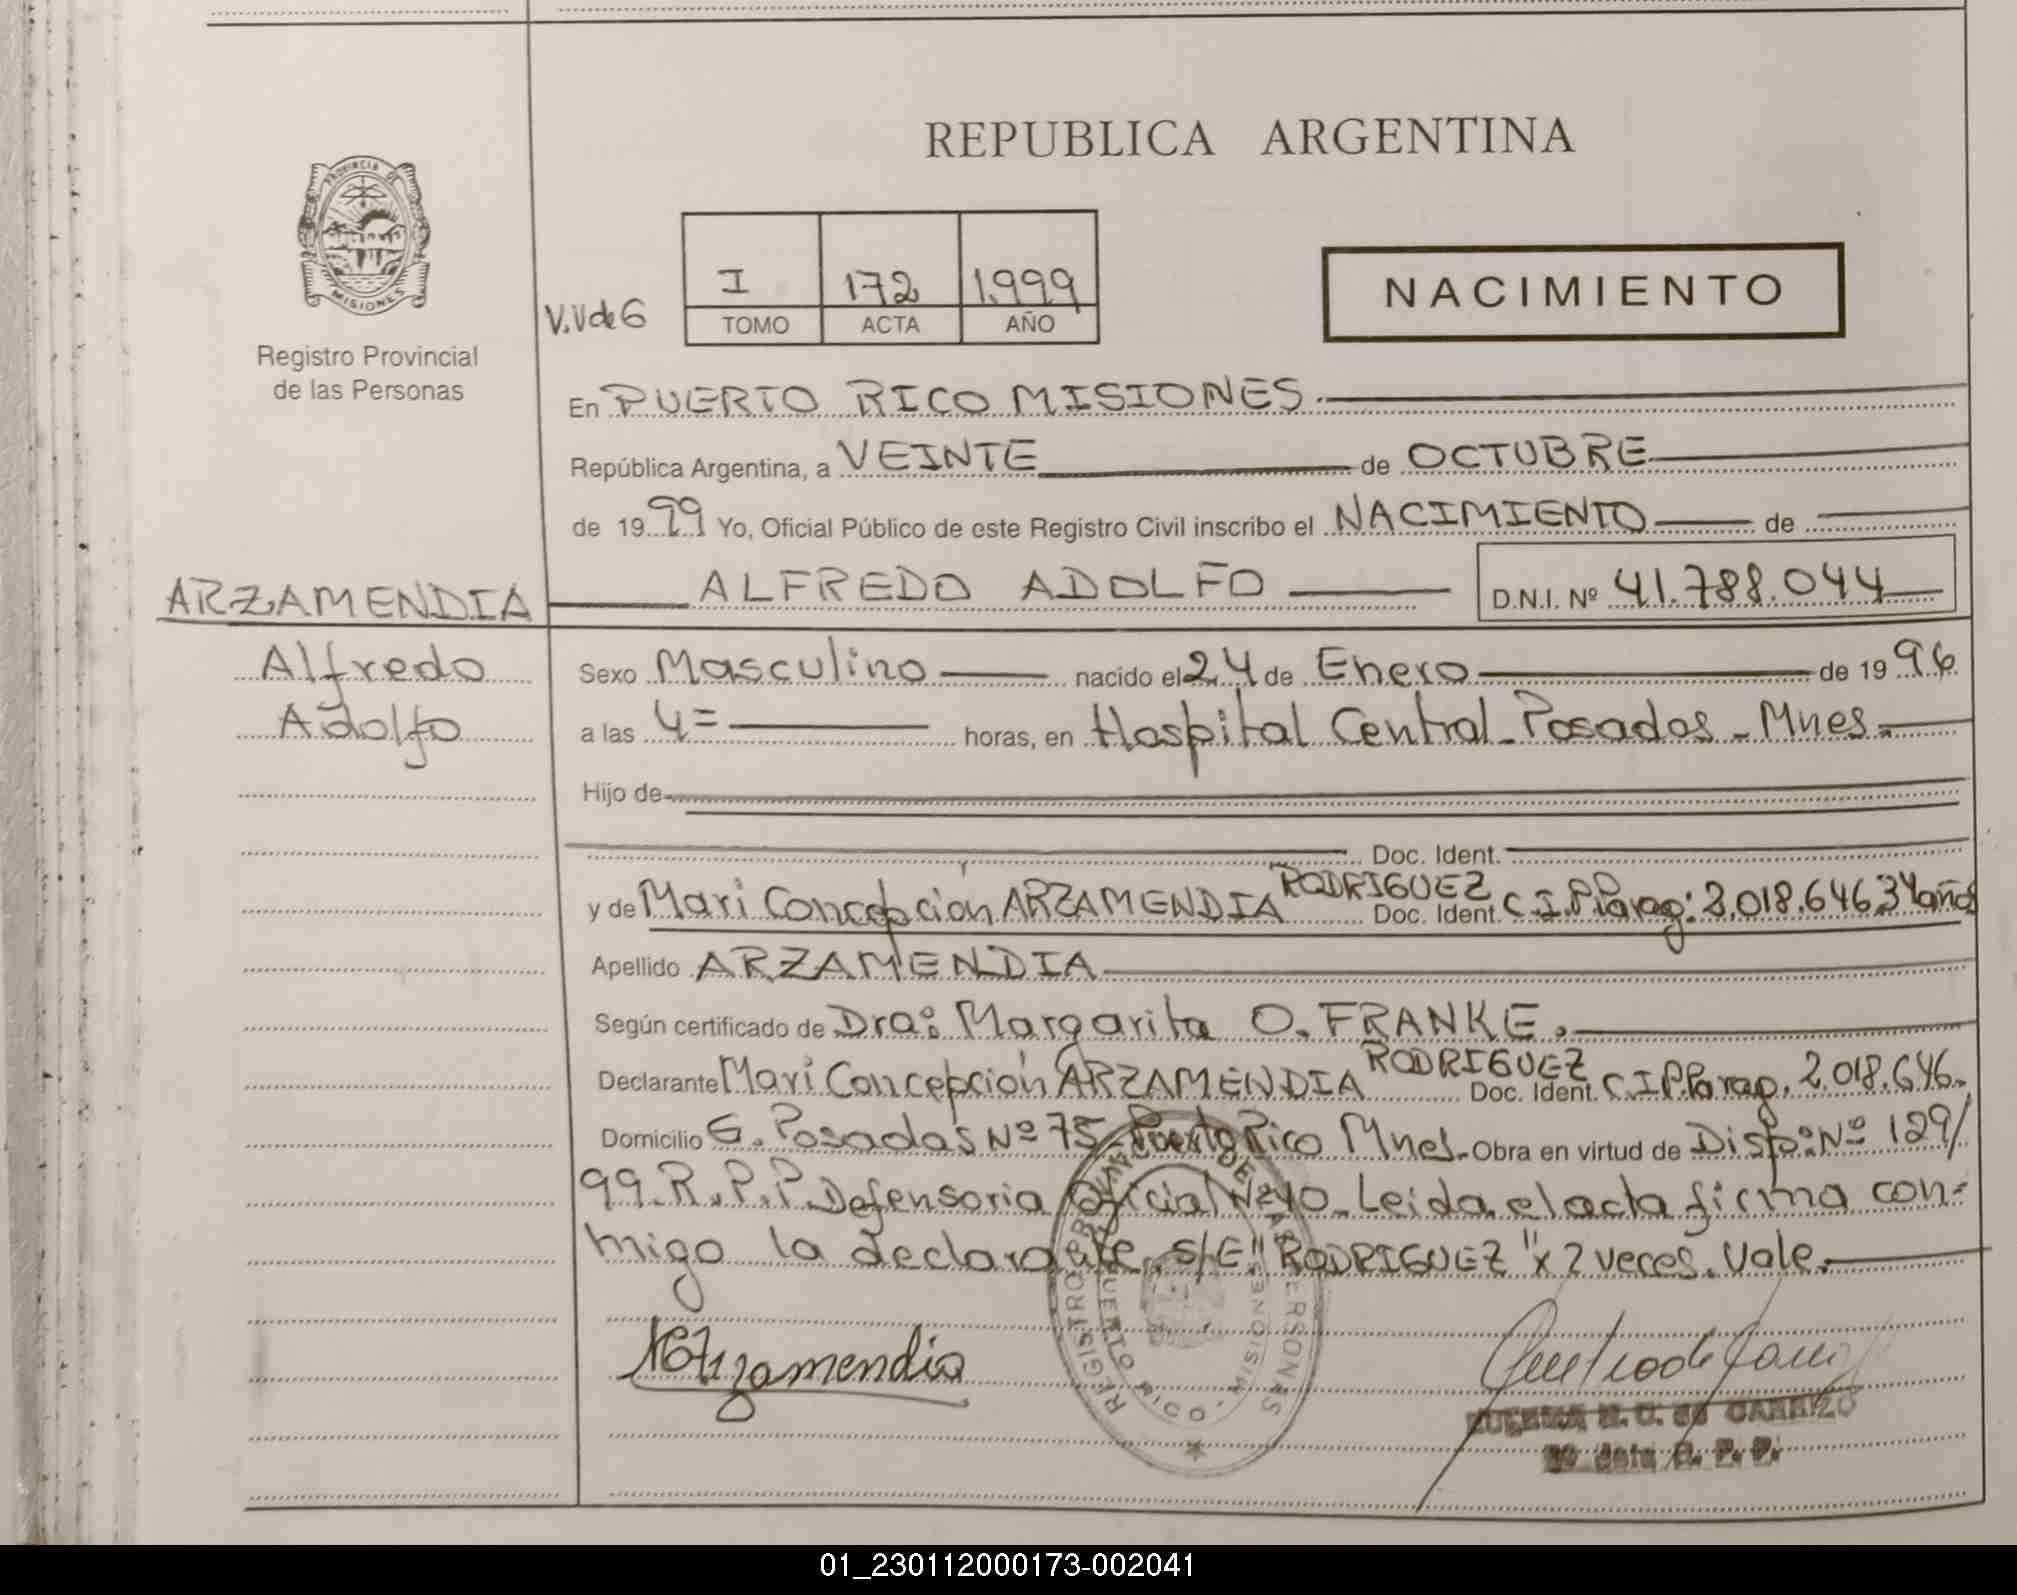 REPUBLICA ARGENTINA
PROVINCIA DE
MISIONES
Registro Provincial
de las Personas
V.V de 6
I 172 1.999
TOMO ACTA AÑO
NACIMIENTO
En PUERTO RICO MISIONES.
República Argentina, a VEINTE de OCTUBRE
de 1999 Yo, Oficial Público de este Registro Civil inscribo el NACIMIENTO de
ARZAMENDIA
ALFREDO ADOLFO D.N.I. Nº 41.788.044
Alfredo
Adolfo
Sexo Masculino nacido el 24 de Enero de 1996
a las 4= horas, en Hospital Central - Posadas - Mnes.
Hijo de
Doc. Ident.
RODRIGUEZ
y de Mari Concepción ARZAMENDIA Doc. Ident. C.I.P.Parag: 2.018.646 34 años
Apellido ARZAMENDIA
Según certificado de Dra: Margarita O. FRANKE.
RODRIGUEZ
Declarante Mari Concepción ARZAMENDIA Doc. Ident. C.I.P.Parag. 2.018.646.
Domicilio G. Posadas Nº 75 - Puerto Rico Mnes. Obra en virtud de Disp: Nº 129/
99. R.P.P. Defensoria Oficial Nº 40. Leida el acta firma con-
migo la declarante. S/E "RODRIGUEZ" x 2 veces. Vale.
Arzamendia
REGISTRO PERSONAS
PUERTO RICO - MISIONES
de CARRIZO
R. P. P.
01_230112000173-002041